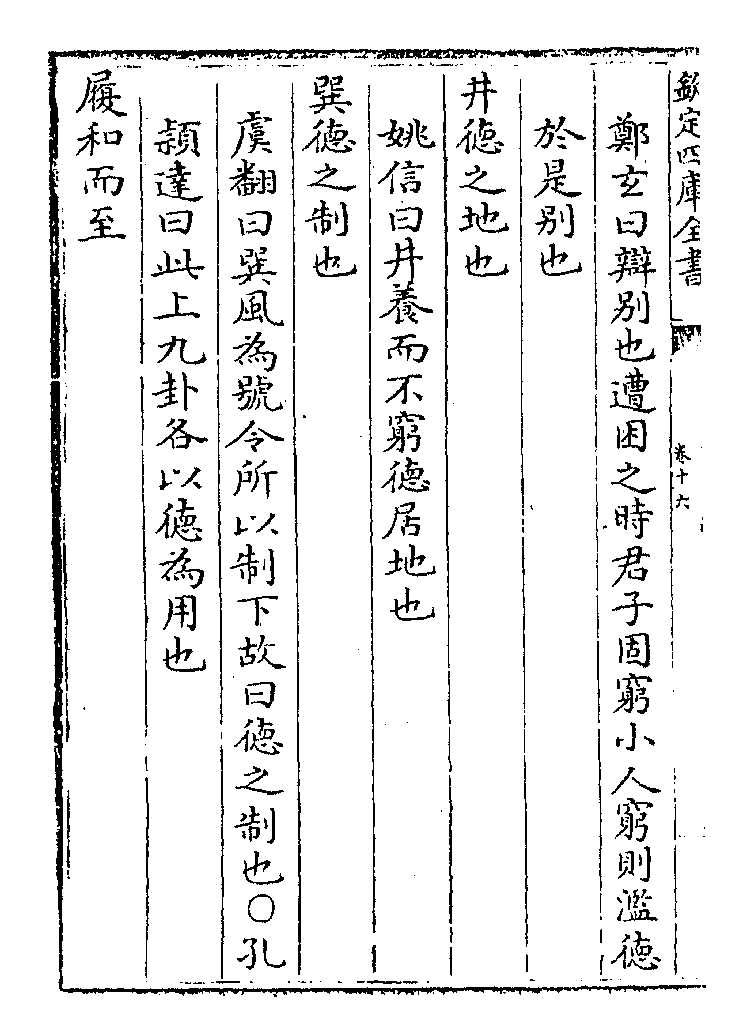 欽定四庫全書
卷十六
鄭玄曰辯別也遭困之時君子固窮小人窮則濫德
於是別也
井德之地也
姚信曰井養而不窮德居地也
巽德之制也
虞翻曰巽風為號令所以制下故曰德之制也○孔
頴達曰此上九卦各以德為用也
履和而至